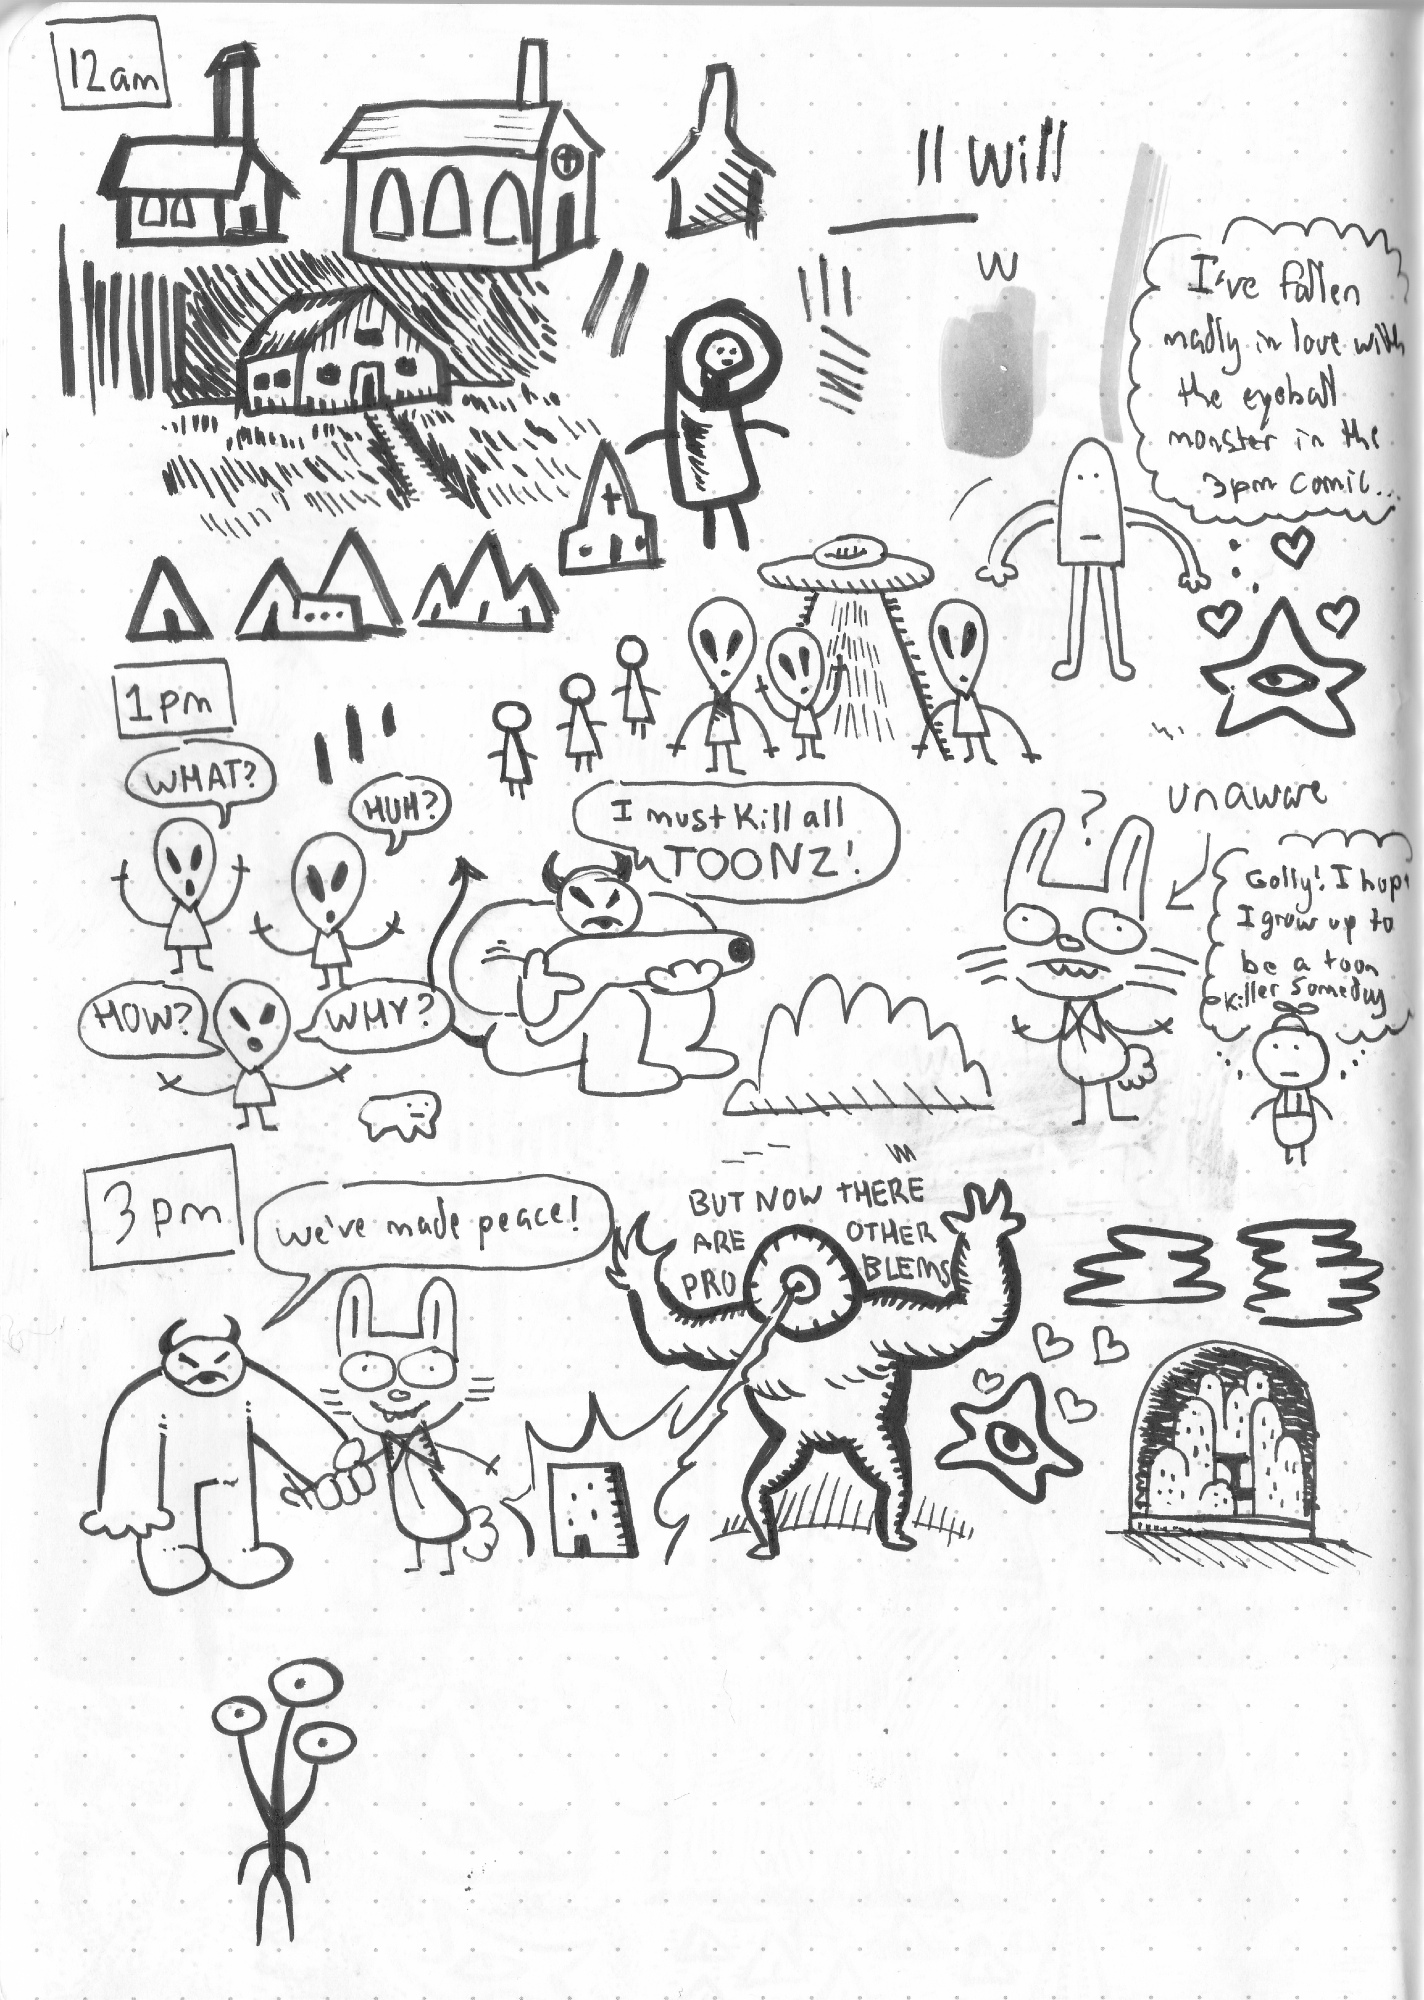 12am
ll will
w
I've fallen
madly in love with
the eyeball
monster in the
3pm comic...
1pm
WHAT?
HUH?
HOW?
WHY?
I must kill all
TOONZ!
?
unaware
Golly! I hope
I grow up to
be a toon
killer someday
3pm
we've made peace!
BUT NOW THERE
ARE OTHER
PROBLEMS